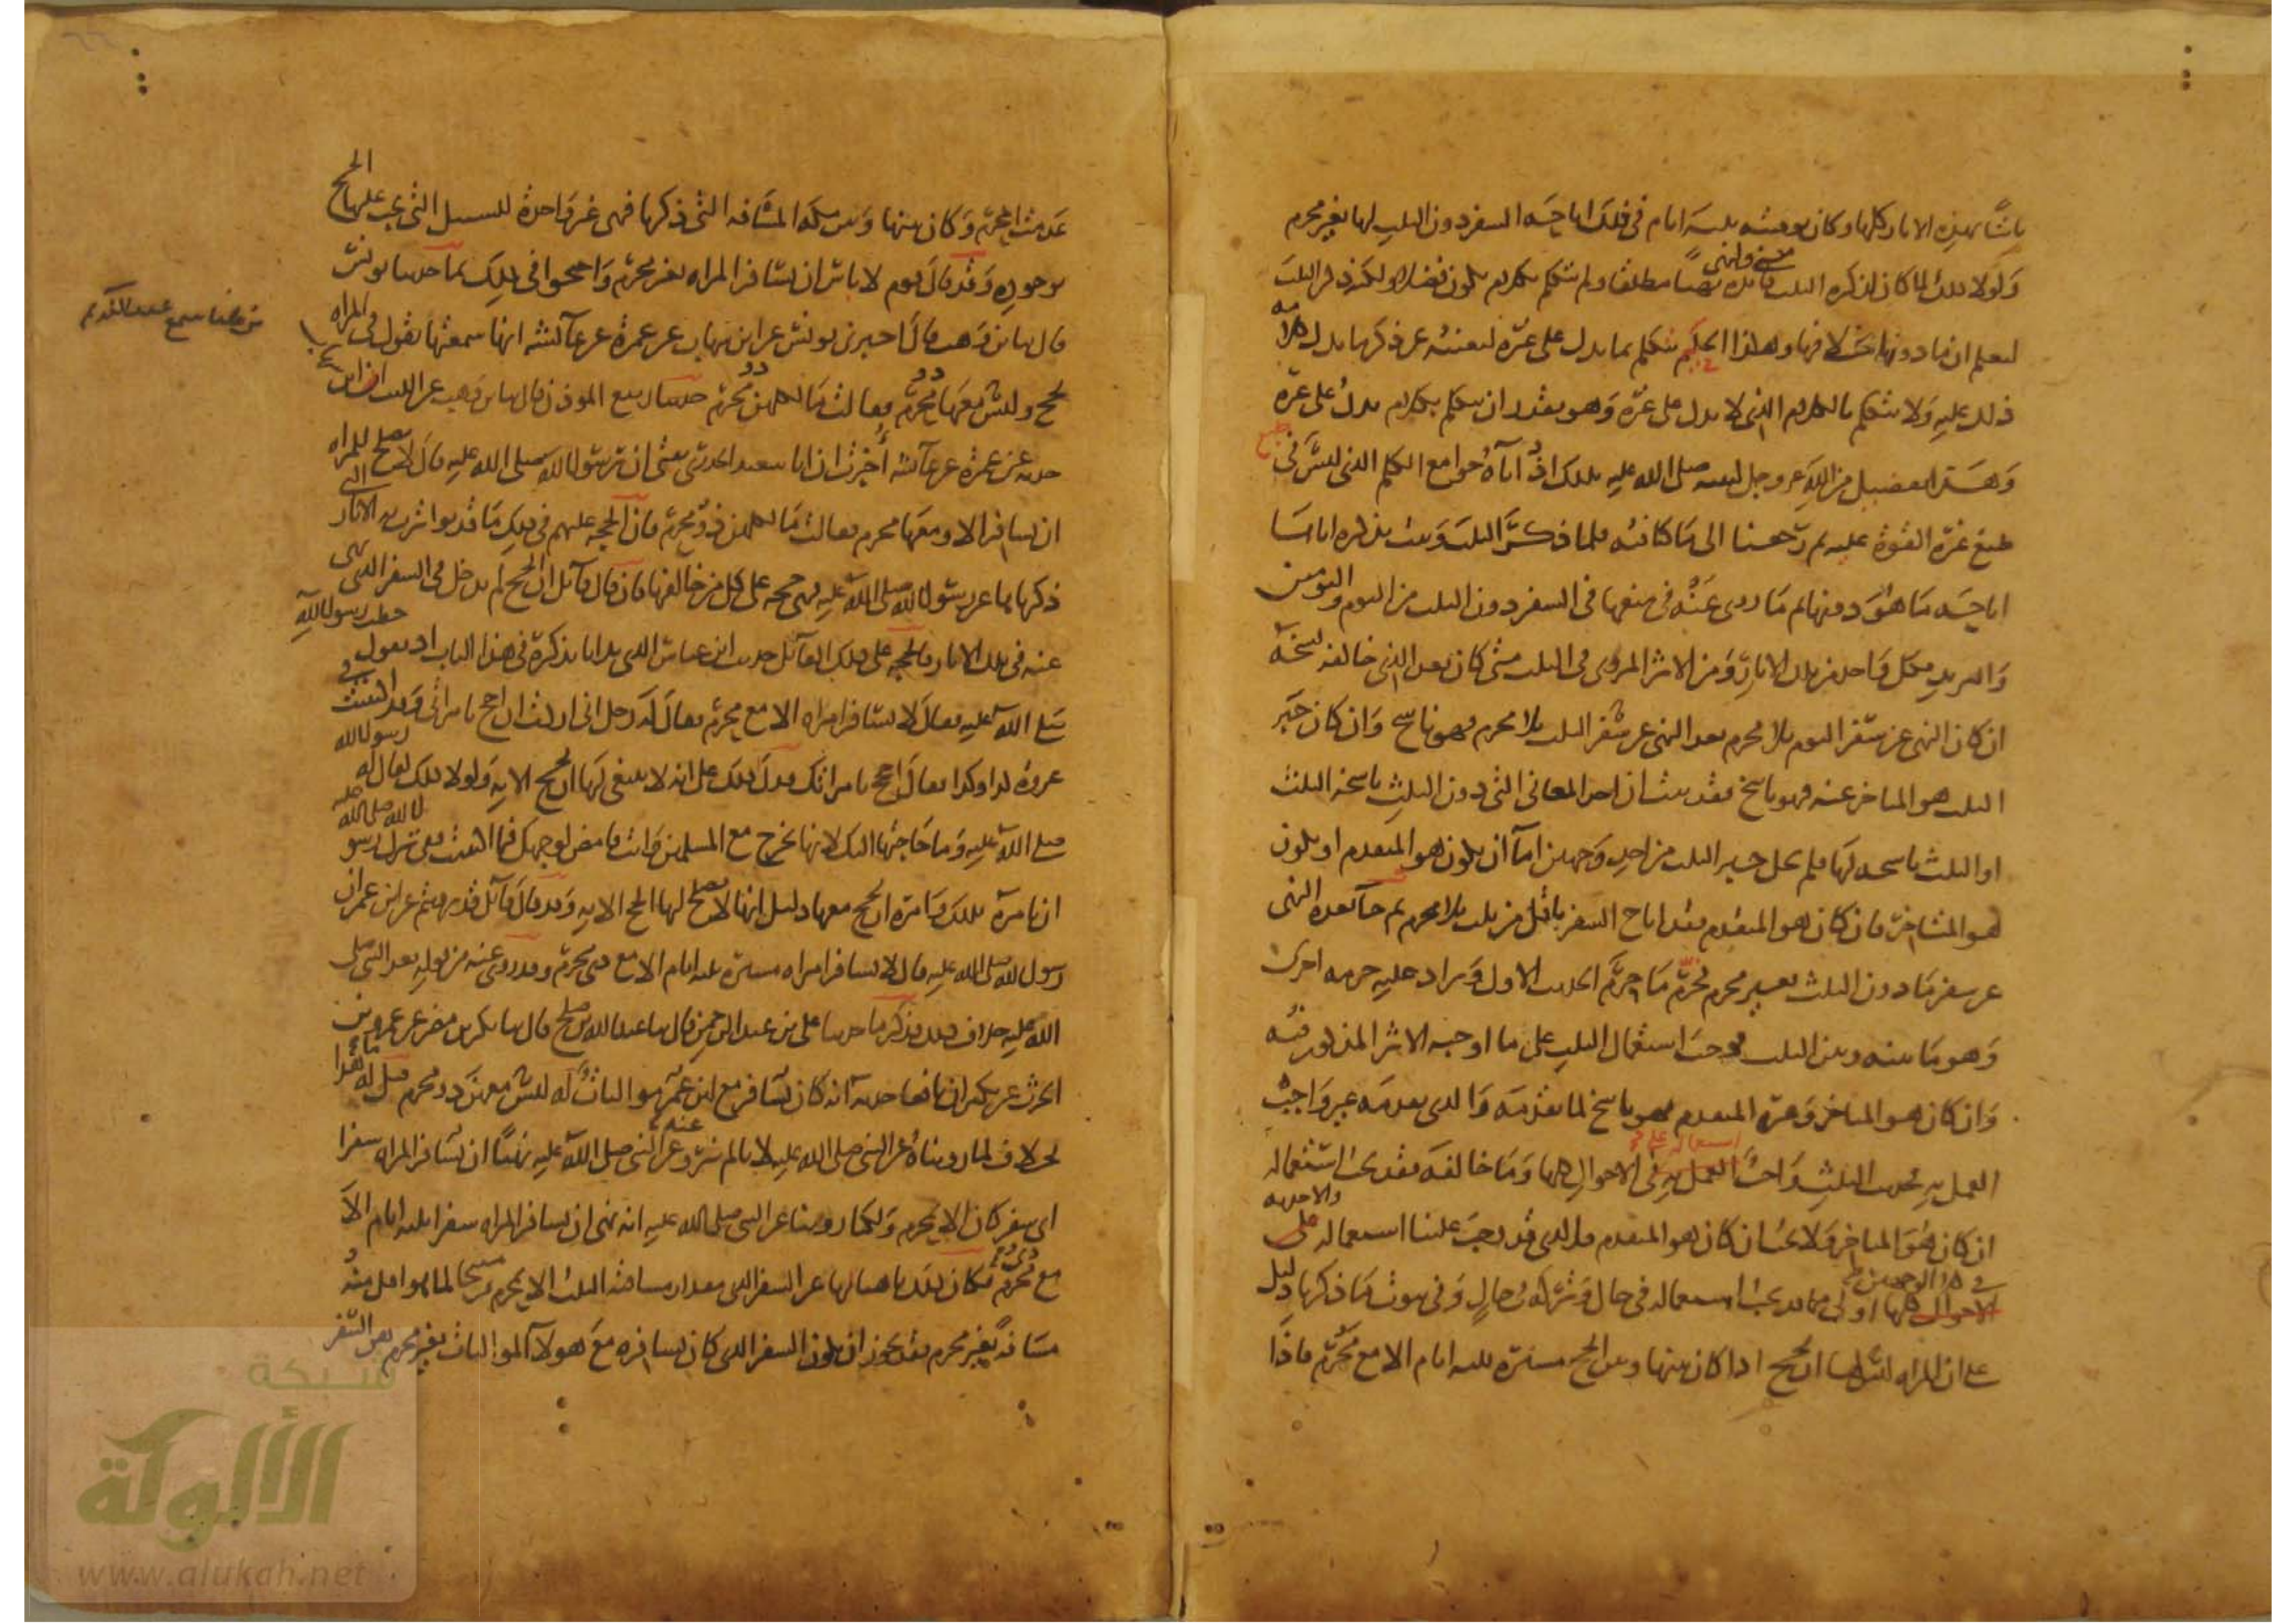 ثابتا بهذه الاثار كلها وكان توقيته ثلثه ايام في ذلك اباحه السفر دون الثلث لها بغير محرم
ولولا ذلك لما كان لذكره الثلث معنى ونهى نهيا مطلقا ولم يتكلم بكلام يكون فضلا ولكنه ذكر الثلث
ليعلم ان ما دونها بخلافها وهكذا الحكيم يتكلم بما يدل على غيره ليغنيه عن ذكر ما يدل كلامه
ذلك عليه ولا يتكلم بالكلام الذي لا يدل على غيره وهو يقدر ان يتكلم بكلام يدل على غيره
وهذا تفضيل من الله عز وجل لنبيه صلى الله عليه بذلك اذ آتاه جوامع الكلم الذي ليس في طبع
غيره القوة عليه ثم رجعنا الى ما كنا فيه فلما ذكر الثلث وثبت بذكره اياها
اباحه ما هو دونها ثم ما روي عنه في منعها في السفر دون الثلث من اليوم واليومين
والبريد فكل واحد من تلك الاثار ومن الاثر المروي في الثلث متى كان بعد الذي خالفه نسخه
ان كان النهي عن سفر اليوم بلا محرم بعد النهي عن سفر الثلث بلا محرم فهو ناسخ وان كان خبر
الثلث هو المتاخر عنه فهو ناسخ فقد ثبت ان احد المعاني التي دون الثلث ناسخه الثلث
او الثلث ناسخه لها فلم يخل خبر الثلث من احد وجهين اما ان يكون هو المتقدم او يكون
هو المتاخر فان كان هو المتقدم فقد اباح السفر باقل من ثلث بلا محرم ثم جاء بعده النهي
عن سفر ما دون الثلث بغير محرم فحرم ما حرم الحديث الاول وزاد عليه حرمه اخرى
وهو ما بينه وبين الثلث فوجب استعمال الثلث على ما اوجبه الاثر المذكور فيه
وان كان هو المتاخر وغيره المتقدم فهو ناسخ لما تقدمه والذي تقدمه غير واجب
العمل به فحديث الثلث واجب استعماله على الاحوال كلها وما خالفه فقد يجب استعماله
ان كان هو المتاخر ولا يجب ان كان هو المتقدم فالذي قد وجب علينا استعماله والاخذ به على
في كلا الوجهين اولى مما قد يجب استعماله في حال وتركه في حال وفي ثبوت ما ذكرنا دليل
على ان المراه ليس لها ان تحج اذا كان بينها وبين الحج مسيره ثلثه ايام الا مع محرم فاذا
عدمت المحرم وكان بينها وبين مكه المسافه التي ذكرنا فهي غير واجدة للسبيل التي يجب عليها الحج
بوجوده وقد قال قوم لا باس ان تسافر المراه بغير محرم واحتجوا في ذلك بما حدثنا يونس
قال ثنا ابن وهب قال اخبرني يونس عن ابن شهاب عن عمرة عن عائشه انها سمعتها تقول في المراه
تحج وليس معها ذو محرم فقالت ما لكلهن ذو محرم حدثنا ربيع الموذن قال ثنا ابن وهب عن الليث ان ابن شهاب
حدثه عن عمرة عن عائشه أخبرت ان ابا سعيد الخدري يفتي ان رسول الله صلى الله عليه قال لا يصلح للمراه
ان تسافر الا ومعها محرم فقالت ما لكلهن ذو محرم فان الحجه عليهم في ذلك ما قد تواترت به الاثار التي
ذكرناها عن رسول الله صلى الله عليه فهي حجه على كل من خالفها فان قال قائل ان الحج لم يدخل في السفر الذي نهى
عنه في تلك الاثار فالحجه على ذلك القائل حديث ابن عباس الذي بدانا بذكره في هذا الباب اذ يقول خطب رسول الله
صلى الله عليه فقال لا تسافر امراه الا مع محرم فقال له رجل اني اردت ان احج بامراتي وقد اكتتبت في
غزوة كذا وكذا فقال احجج بامراتك فدل ذلك على انه لا ينبغي لها ان تحج الا به ولولا ذلك لقال له رسول الله
صلى الله عليه وما حاجتها اليك لانها تخرج مع المسلمين وانت فامض لوجهك فيما اكتتبت ففي ترك رسول الله صلى الله عليه
ان يامره بذلك وامره ان يحج معها دليل انها لا يصلح لها الحج الا به وقد قال قائل قد رويتم عن ابن عمر ان
رسول الله صلى الله عليه قال لا تسافر امراه مسيره ثلثه ايام الا مع ذي محرم وقد روي عنه من قوله بعد النبي صلى
الله عليه خلاف ذلك فذكر ما حدثنا علي بن عبد الرحمن قال ثنا عبد الله بن صلح قال ثنا بكر بن مضر عن عمرو بن
الحرث عن بكير ان نافعا حدثه انه كان يسافر مع ابن عمر مواليات له ليس معهن ذو محرم قيل له ما هذا
بخلاف لما رويناه عن النبي صلى الله عليه لانا لم نرو عنه عن النبي صلى الله عليه نهيا ان تسافر المراه سفرا
اي سفر كان الا بمحرم ولكنا روينا عن النبي صلى الله عليه انه نهى ان تسافر المراه سفرا ثلثه ايام الا
مع ذي محرم فكان ذلك ناهيا لها عن السفر الذي مقدار مسافته الثلث الا بمحرم ومبيحا لما هو اقل منه
مسافه بغير محرم فقد يجوز ان يكون السفر الذي كان يسافره مع هولآء المواليات بغير محرم هو السفر